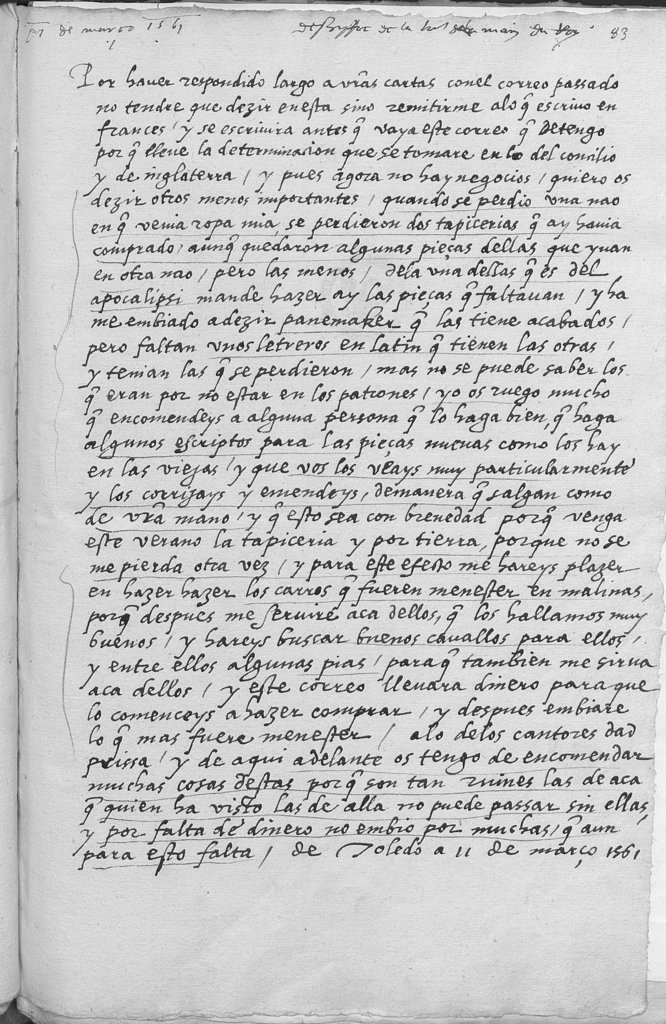 de março 1561 83
Por haver respondido largo a vr̃as cartas con el correo passado
no tendre que dezir en esta sino remitirme alo q̃ escrivo en
frances / y se escrivira antes q̃ vaya este correo q̃ Detengo
por q̃ lleve la determinacion que se tomare en lo del concilio
y de inglaterra / y pues agora no hay negocios / quiero os
dezir otros menos importantes / quando se perdio una nao
en q̃ venia ropa mia, se perdieron dos tapicerias q̃ ay havia
comprado / aunq̃ quedaron algunas pieças dellas que yvan
en otra nao / pero las menos / dela una dellas q̃ es del
apocalipsi mande hazer ay las pieças q̃ faltavan / y ha
me embiado a dezir panemaker q̃ las tiene acabados /
pero faltan unos letreros en latin q̃ tienen las otras /
y tenian las q̃ se perdieron / mas no se puede saber los
q̃ eran por no estar en los patrones / yo os ruego mucho
q̃ encomendeys a alguna persona q̃ lo haga bien, q̃ haga
algunos escriptos para las pieças nuevas como los hay
en las viejas / y que vos los veays muy particularmente
y los corrijays y emendeys, demanera q̃ salgan como
de vr̃a mano / y q̃ esto sea con brevedad porq̃ venga
este verano la tapiceria y por tierra, porque no se
me pierda otra vez / y para este efesto me hareys plazer
en hazer hazer los carros q̃ fueren menester en malinas,
porq̃ despues me servire aca dellos, q̃ los hallamos muy
buenos / y hareys buscar buenos cavallos para ellos /
y entre ellos algunas pias / para q̃ tambien me sirva
aca dellos / y este correo llevara dinero para que
lo comenceys a hazer comprar / y despues embiare
lo q̃ mas fuere menester / alo delos cantores dad
prissa / y de aqui adelante os tengo de encomendar
muchas cosas destas porq̃ son tan ruines las de aca
q̃ quien ha visto las de alla no puede passar sin ellas,
y por falta de dinero no embio por muchas / q̃ aun
para esto falta / de Toledo a 11 de março 1561